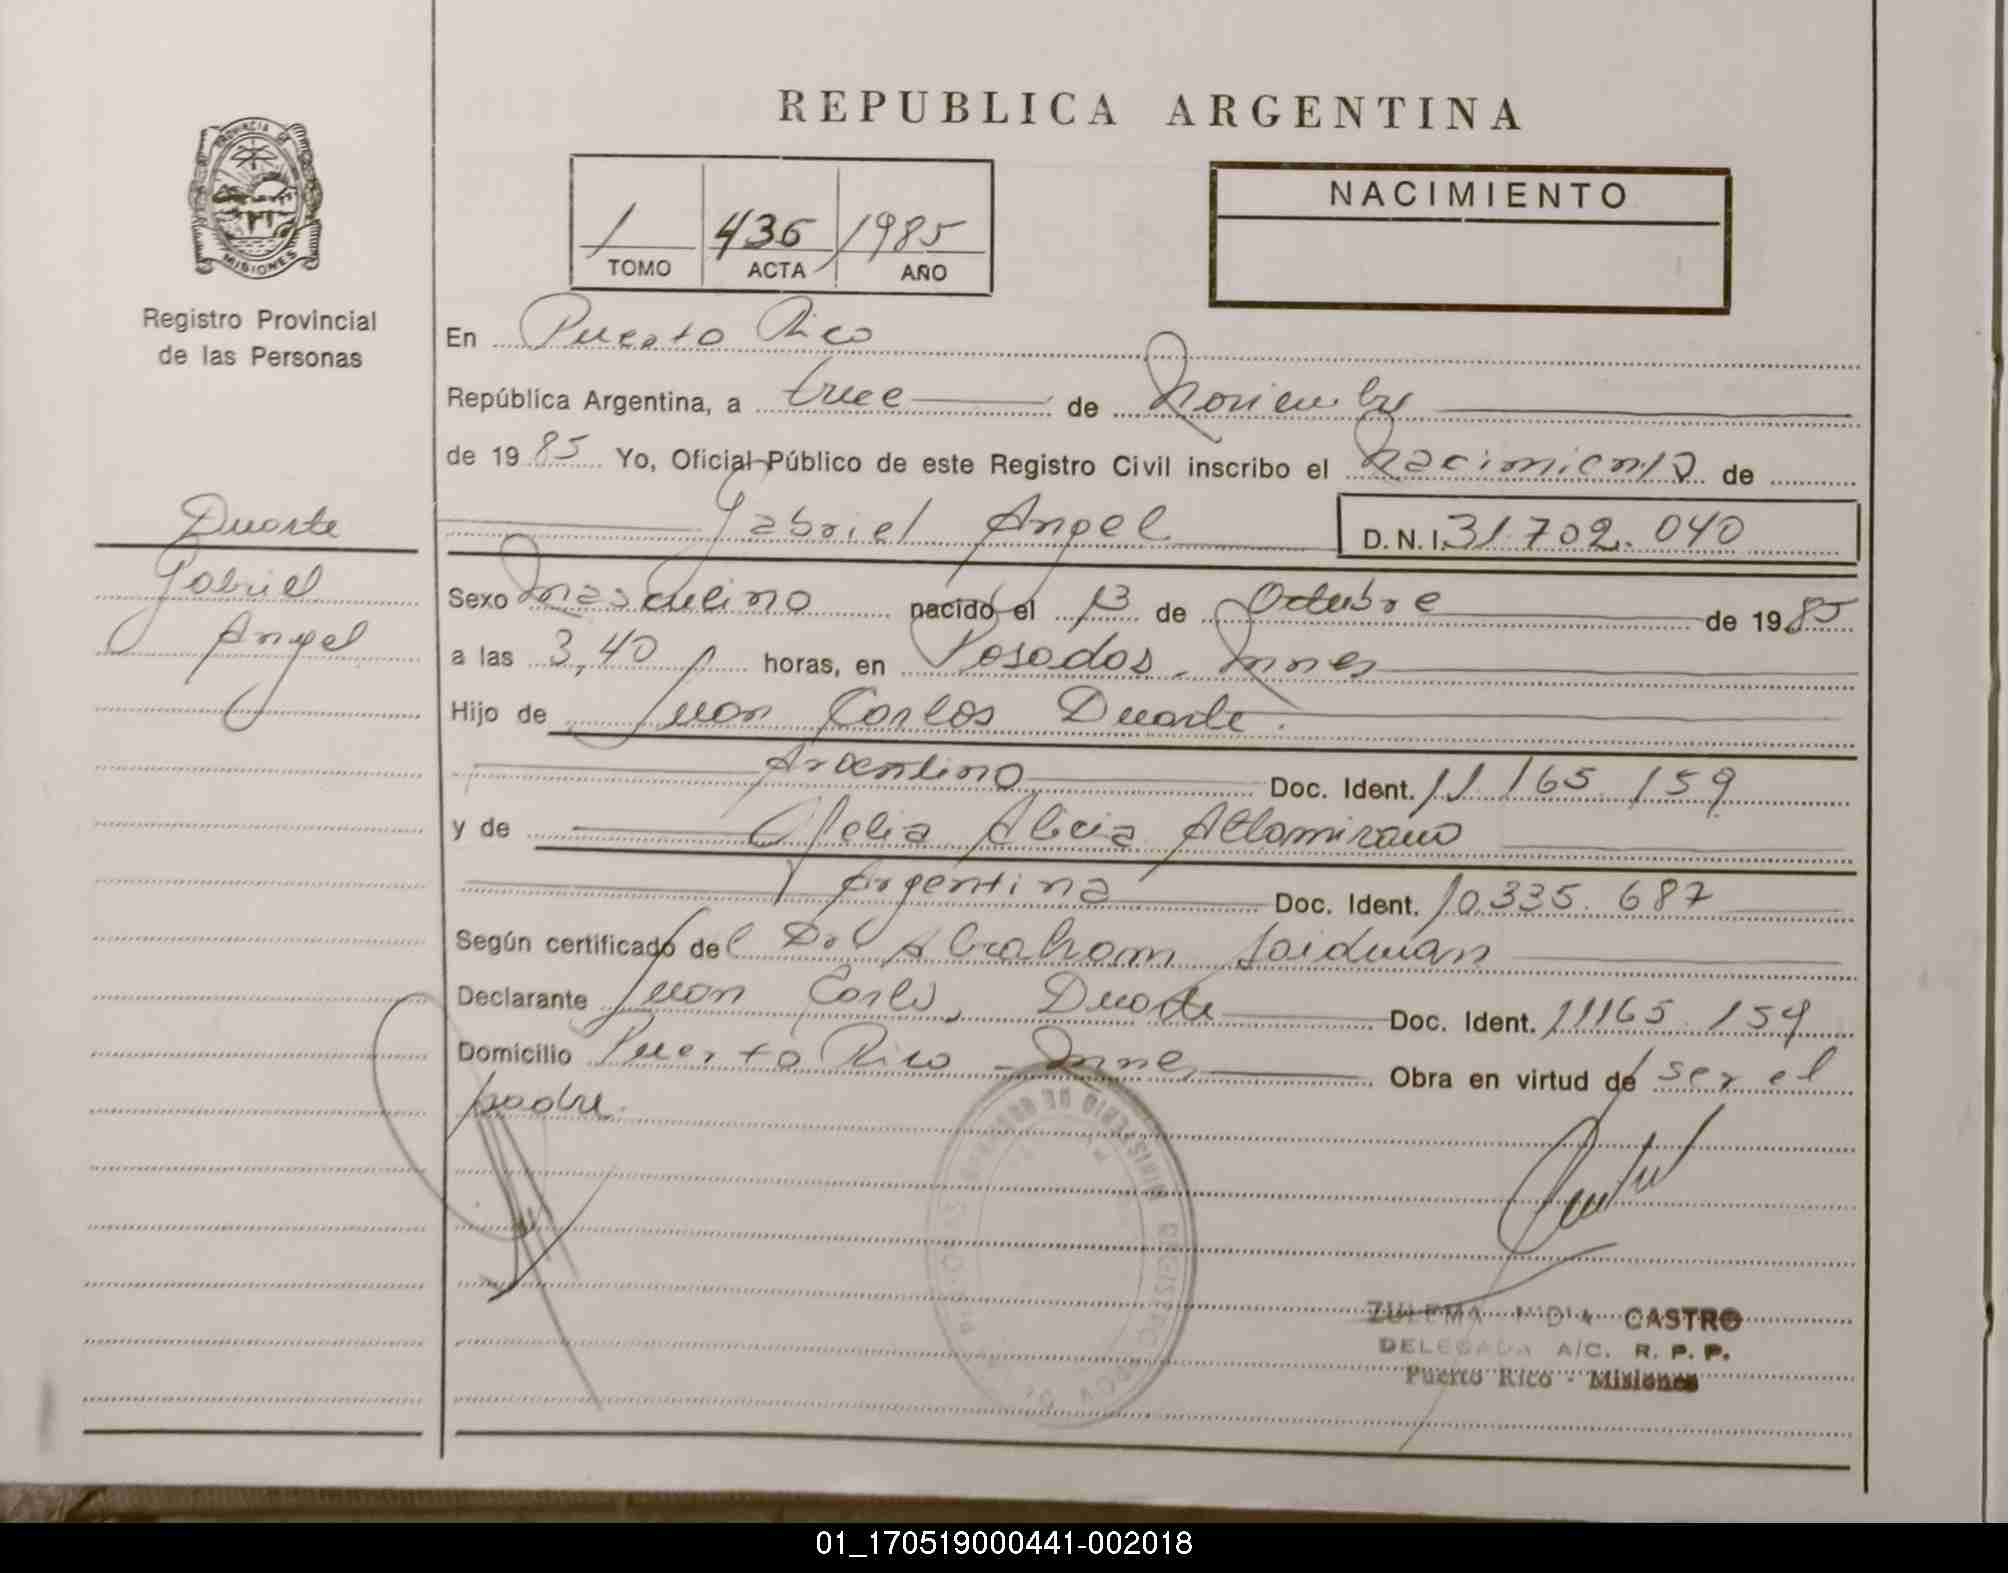 REPUBLICA ARGENTINA
PROVINCIA DE
MISIONES
Registro Provincial
de las Personas
1 436 1985
TOMO ACTA AÑO
NACIMIENTO
En Puerto Rico
República Argentina, a trece de Noviembre
de 1985 Yo, Oficial Público de este Registro Civil inscribo el Nacimiento de
Gabriel Angel D. N. I. 31.702.040
Duarte
Gabriel
Angel
Sexo Masculino nacido el 13 de Octubre de 1985
a las 3,40 horas, en Posadas, Mnes
Hijo de Juan Carlos Duarte.
Argentino Doc. Ident. 11.165.159
y de Ofelia Alicia Altamirano
Argentina Doc. Ident. 10.335.687
Según certificado del Dr. Abraham Saidman
Declarante Juan Carlos Duarte Doc. Ident. 11165.159
Domicilio Puerto Rico - Mnes Obra en virtud de ser el
padre.
MINISTERIO DE
REGISTRO PROV. DE
ZULEMA CASTRO
DELEGADA A/C. R. P. P.
Puerto Rico - Misiones
01_170519000441-002018